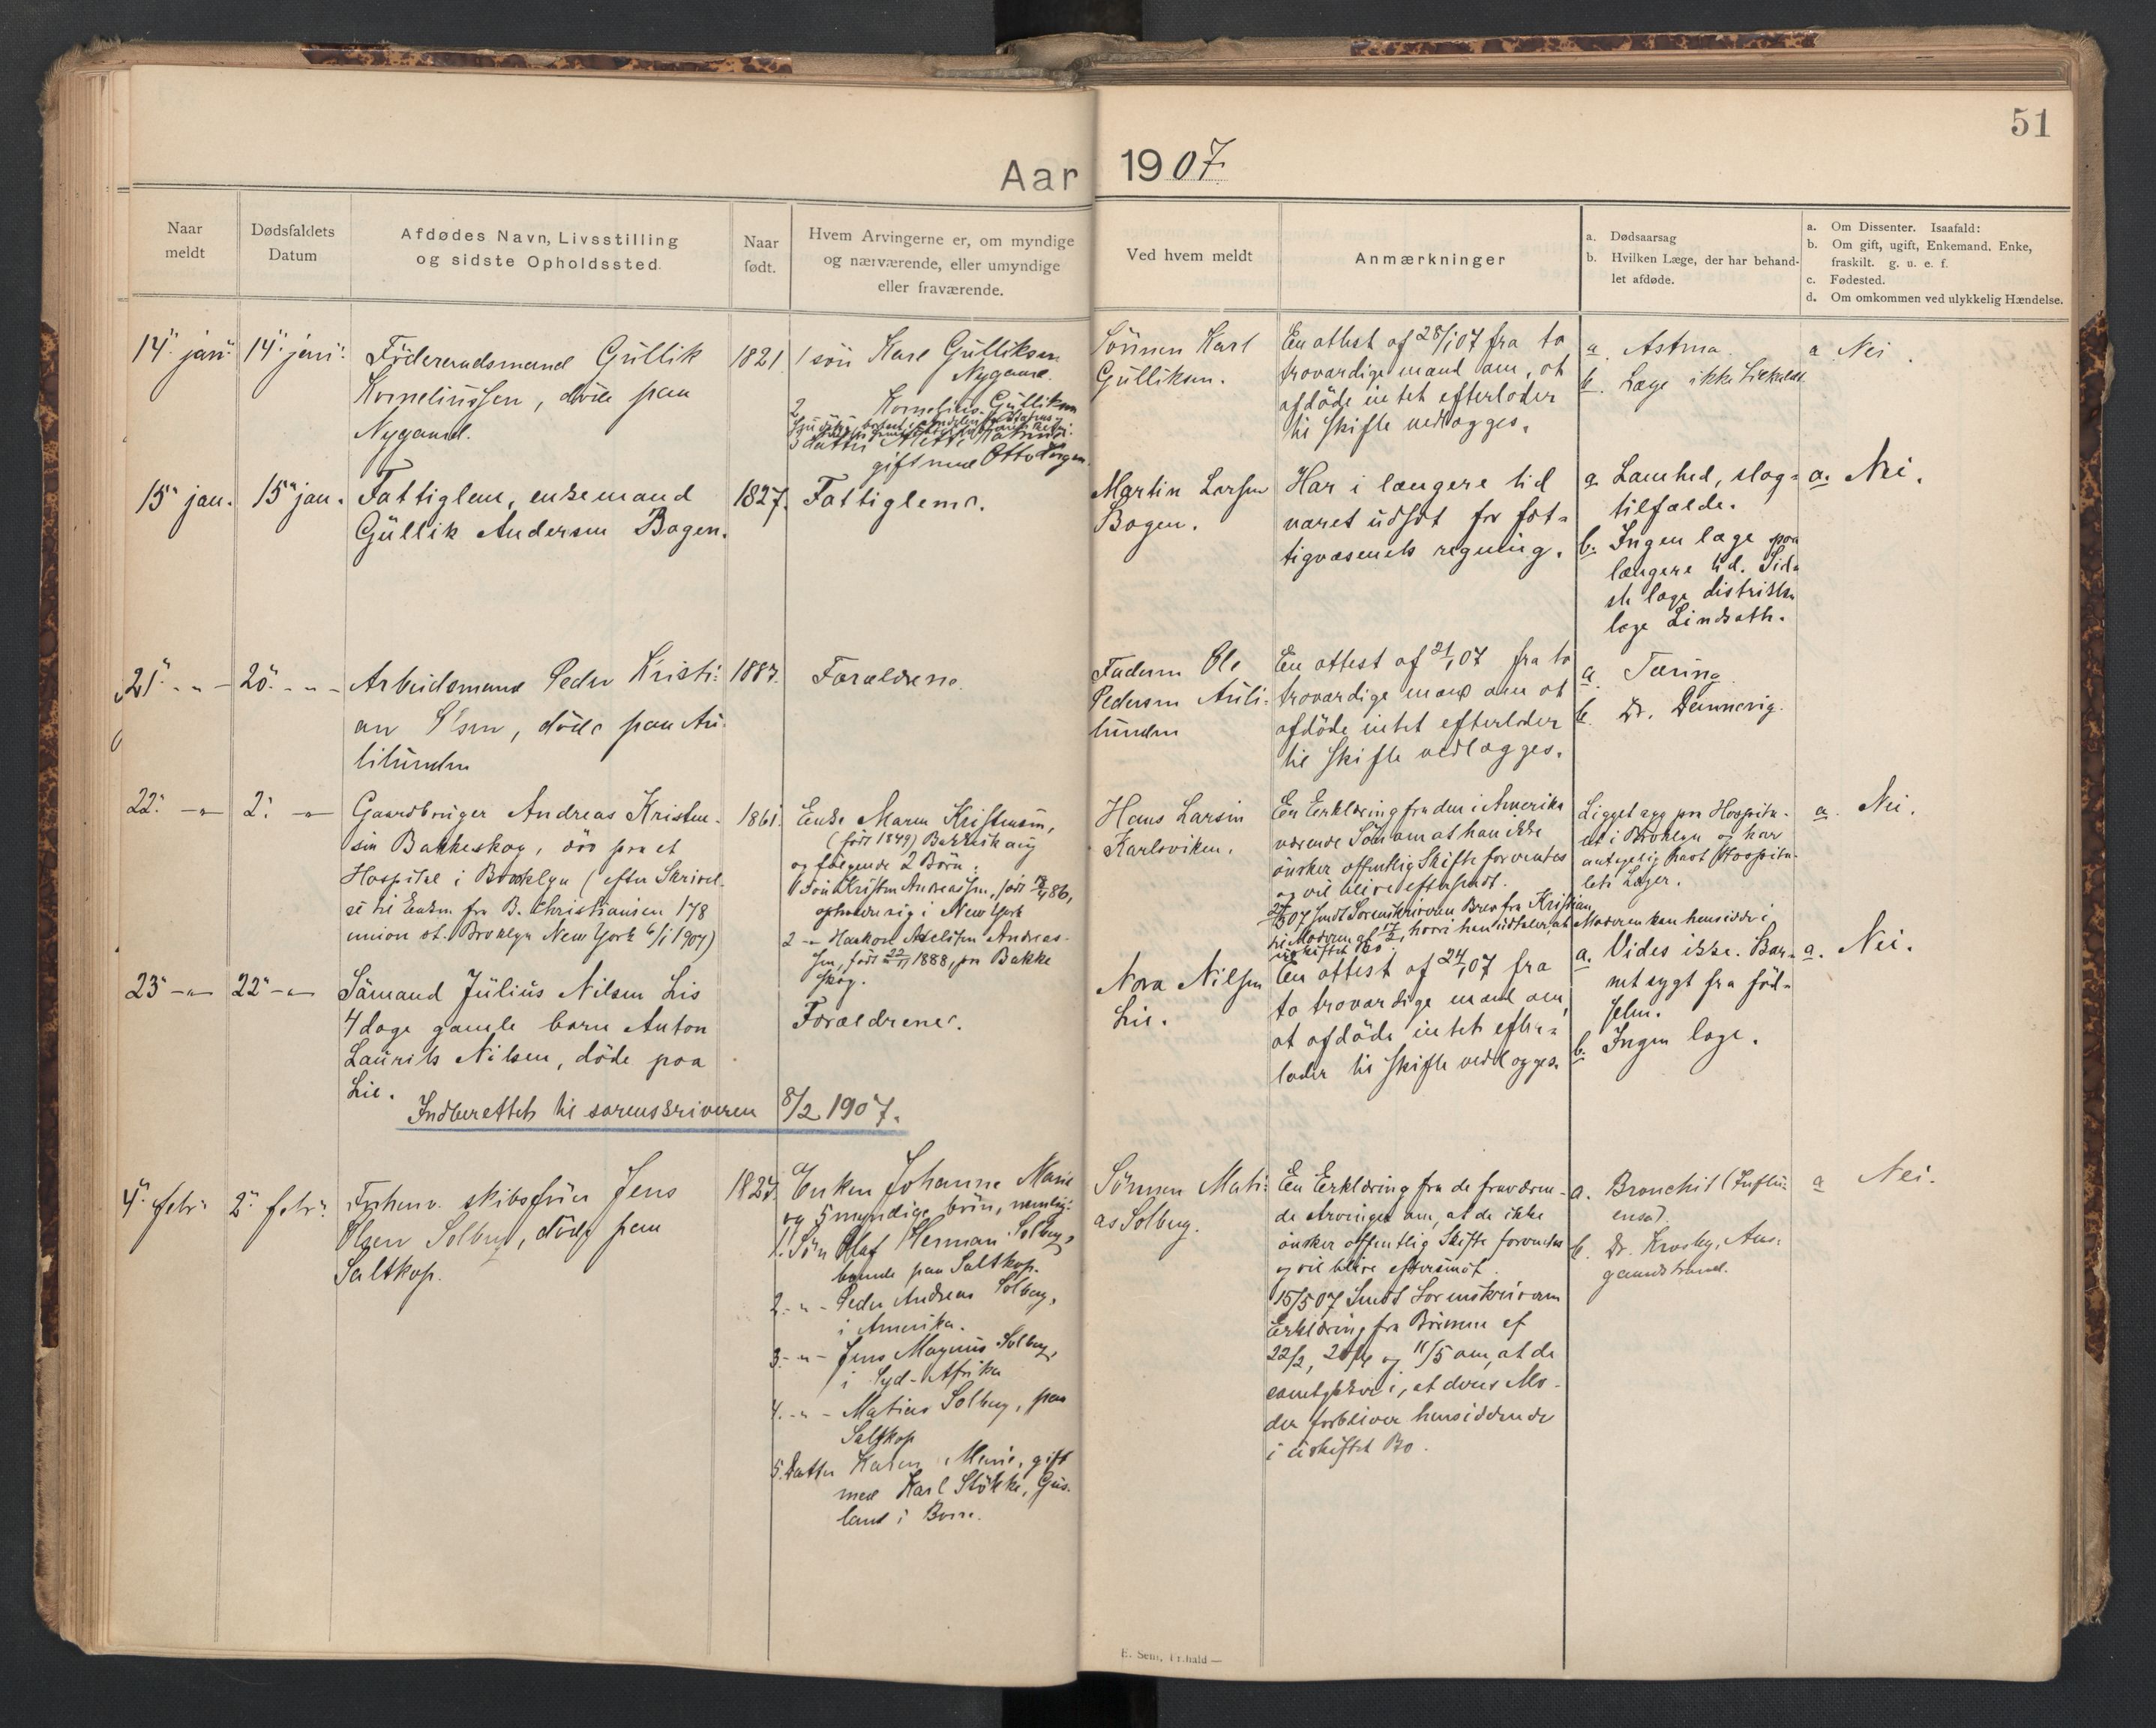 51
Aar 1907.
Naar
meldt
Dødsfaldets
Datum
Afdødes Navn, Livsstilling
og sidste Opholdssted.
Naar
født.
Hvem Arvingerne er, om myndige
og nærværende, eller umyndige
eller fraværende.
Ved hvem meldt
Anmærkninger
a. Dødsaarsag
b. Hvilken Læge, der har behand-
let afdøde.
a. Om Dissenter. Isaafald:
b. Om gift, ugift, Enkemand. Enke,
fraskilt. g. u. e. f.
c. Fødested.
d. Om omkommen ved ulykkelig Hændelse.
14. jan.
14. jan.
Föderaadsmand Gullik
Kornelinssen, døde paa
Nygaard.
1821
1 søn Karl Gulliksen
Nygaard.
2 Kornelius Gulliksen
3 datter Mette
gift med Otto
Sönnen Karl
Gulliksen.
En attest af 28/1 07 fra to
troværdige mænd om, at
afdöde intet efterlader
til skifte vedlægges.
a. Astma.
b. Læge ikke tilkaldt
a. Nei.
15 jan.
15 jan.
Fattiglem, enkemand
Gullik Andersen Bagen.
1827.
Fattiglem.
Martin Larsen
Bogen.
Har i længere tid
været udsat for fat-
tigvæsenets regning.
a. Lamhed, slag-
tilfælde.
b. Ingen læge paa
længere tid. Sid-
ste læge distrikts-
læge Lindsoth.
a. Nei.
21. - " -
20. - " -
Arbeidsmand Peder Kristi-
an Olsen, döde paa Au-
litunden
1887.
Forældrene.
Faderen Ole
Pedersen Auli-
tunden
En attest af 21/1 07 fra to
troværdige mænd om at
afdöde intet efterlader
til skifte vedlægges.
a. Tæring
b. Dr. Dannevig.
22. - " -
2. - " -
Gaardbruger Andreas Kristen-
sen Bakkeskog, död paa et
Hospital i Brooklyn (efter Skrivel-
se til Enken fra B. Christiansen 178
union st. Broklyn New York 6/1 1907)
1861.
Enke Maren Kristensen,
(født 1849) Bakkeskaug
og fölgende 2 Börn:
1 Sön Kristen Andreassen, født 86,
opholder sig i New York
2 - " - Haakon Axelsen Andreas-
sen, født 1888, paa Bakke
skog.
Hans Larsen
Karlsviken.
En Erklæring fra den i Amerika
værende Sön om at han ikke
önsker offentlig Skifte forventes
og vil blive eftersendt.
07 sendt Sorenskriveren Brev fra Kristian
til Moderen af hvori han udtaler, at Moderen kan hensidde i
uskiftet bo.
Ligget syg paa Hospita-
let i Broklyn og har
antagelig havt Hospita-
lets Læger.
a. Nei.
23 - " -
22 - " -
Sömand Julius Nilsen Lis
4 dage gamle barn Anton
Laurits Nilsen, döde paa
Lie.
Forældrene.
Nora Nilsen
Lie.
En attest af 24/1 07 fra
to troværdige mænd om,
at afdöde intet efter-
lader til skifte vedlægges.
a. Vides ikke. Bar-
net sygt fra föd-
selen.
b. Ingen læge.
a. Nei.
Indberettet til sorenskriveren 8/2 1907.
4. febr.
2. febr.
Forhenv. skibsförer Jens
Olsen Solberg, döde paa
Saltkop.
1827.
Enken Johanne Marie
og 5 myndige börn, nemlig:
1. Sön Olaf Herman Solberg,
boende paa Saltkop.
2. - " - Peder Andreas Solberg,
i Amerika.
3. - " - Jens Magnus Solberg,
i Syd-Afrika
4. - " - Matias Solberg, paa
Saltkop
5. Datter Karen Marie, gift
med Karl Stökke, Gus-
land i Borre.
Sönnen Mati-
as Solberg.
En Erklæring fra de fraværen-
de Arvinger om, at de ikke
önsker offentlig Skifte forventes
og vil blive eftersendt.
15/5 07 Sendt Sorenskriveren
Erklæring fra Börnene af
22/2, 20/4 og 11/5 om, at de
samtykker i, at deres Mo-
der forbliver hensiddende
i uskiftet Bo.
a. Bronchit (Influ-
ensa).
b. Dr. Krosby, Aas-
gaardstrand.
a Nei.
E. Sem, Fr.hald —